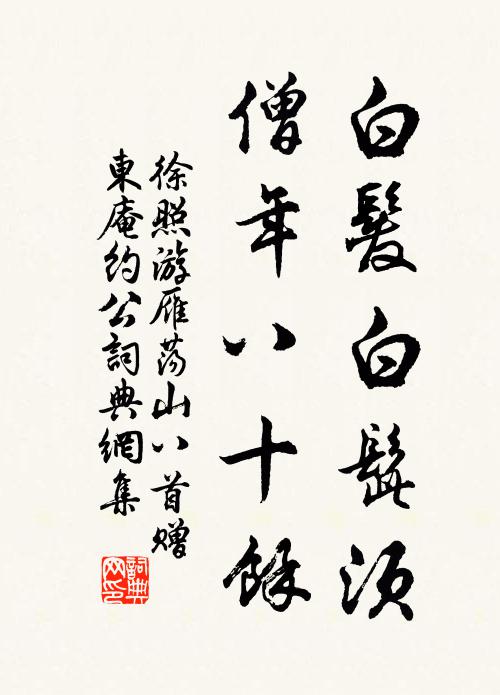 白髮白髭須
僧年八十餘
徐照游雁蕩山八首贈
東庵約公詞典網集
詞典
网印